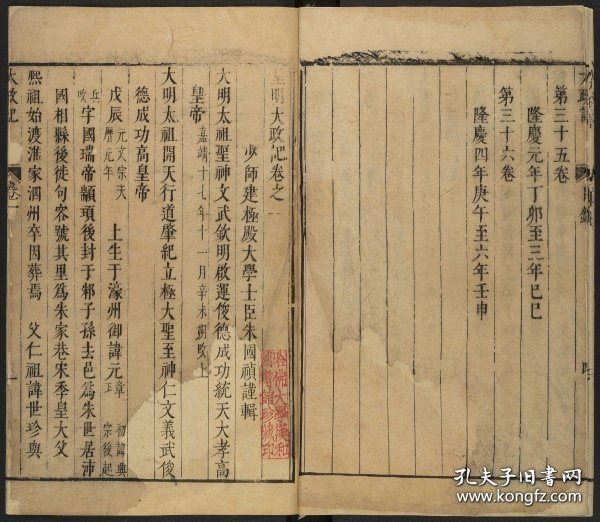 第三十五卷
隆慶元年丁卯至三年己巳
第三十六卷
隆慶四年庚午至六年壬申
皇明大政記卷之一
少師建極殿大學士臣朱國禎謹輯
大明太祖聖神文武欽明啟運俊德成功統天大孝高
皇帝 嘉靖十七年十一月辛未朔改上
大明太祖開天行道肇紀立極大聖至神仁文義武俊
德成功高皇帝
戊辰 元文宗天曆元年 上生于濠州御諱元章 初諱興宗後起
兵改 字國瑞帝顓頊後封于邾子孫去邑爲朱世居沛
國相縣後徙句容號其里爲朱家巷宋季皇大父
熙祖始渡淮家泗州卒因葬焉 父仁祖諱世珍與
大政記
卷一
哈佛大學漢和圖書館珍藏印
孔夫子旧书网
www.kongfz.com